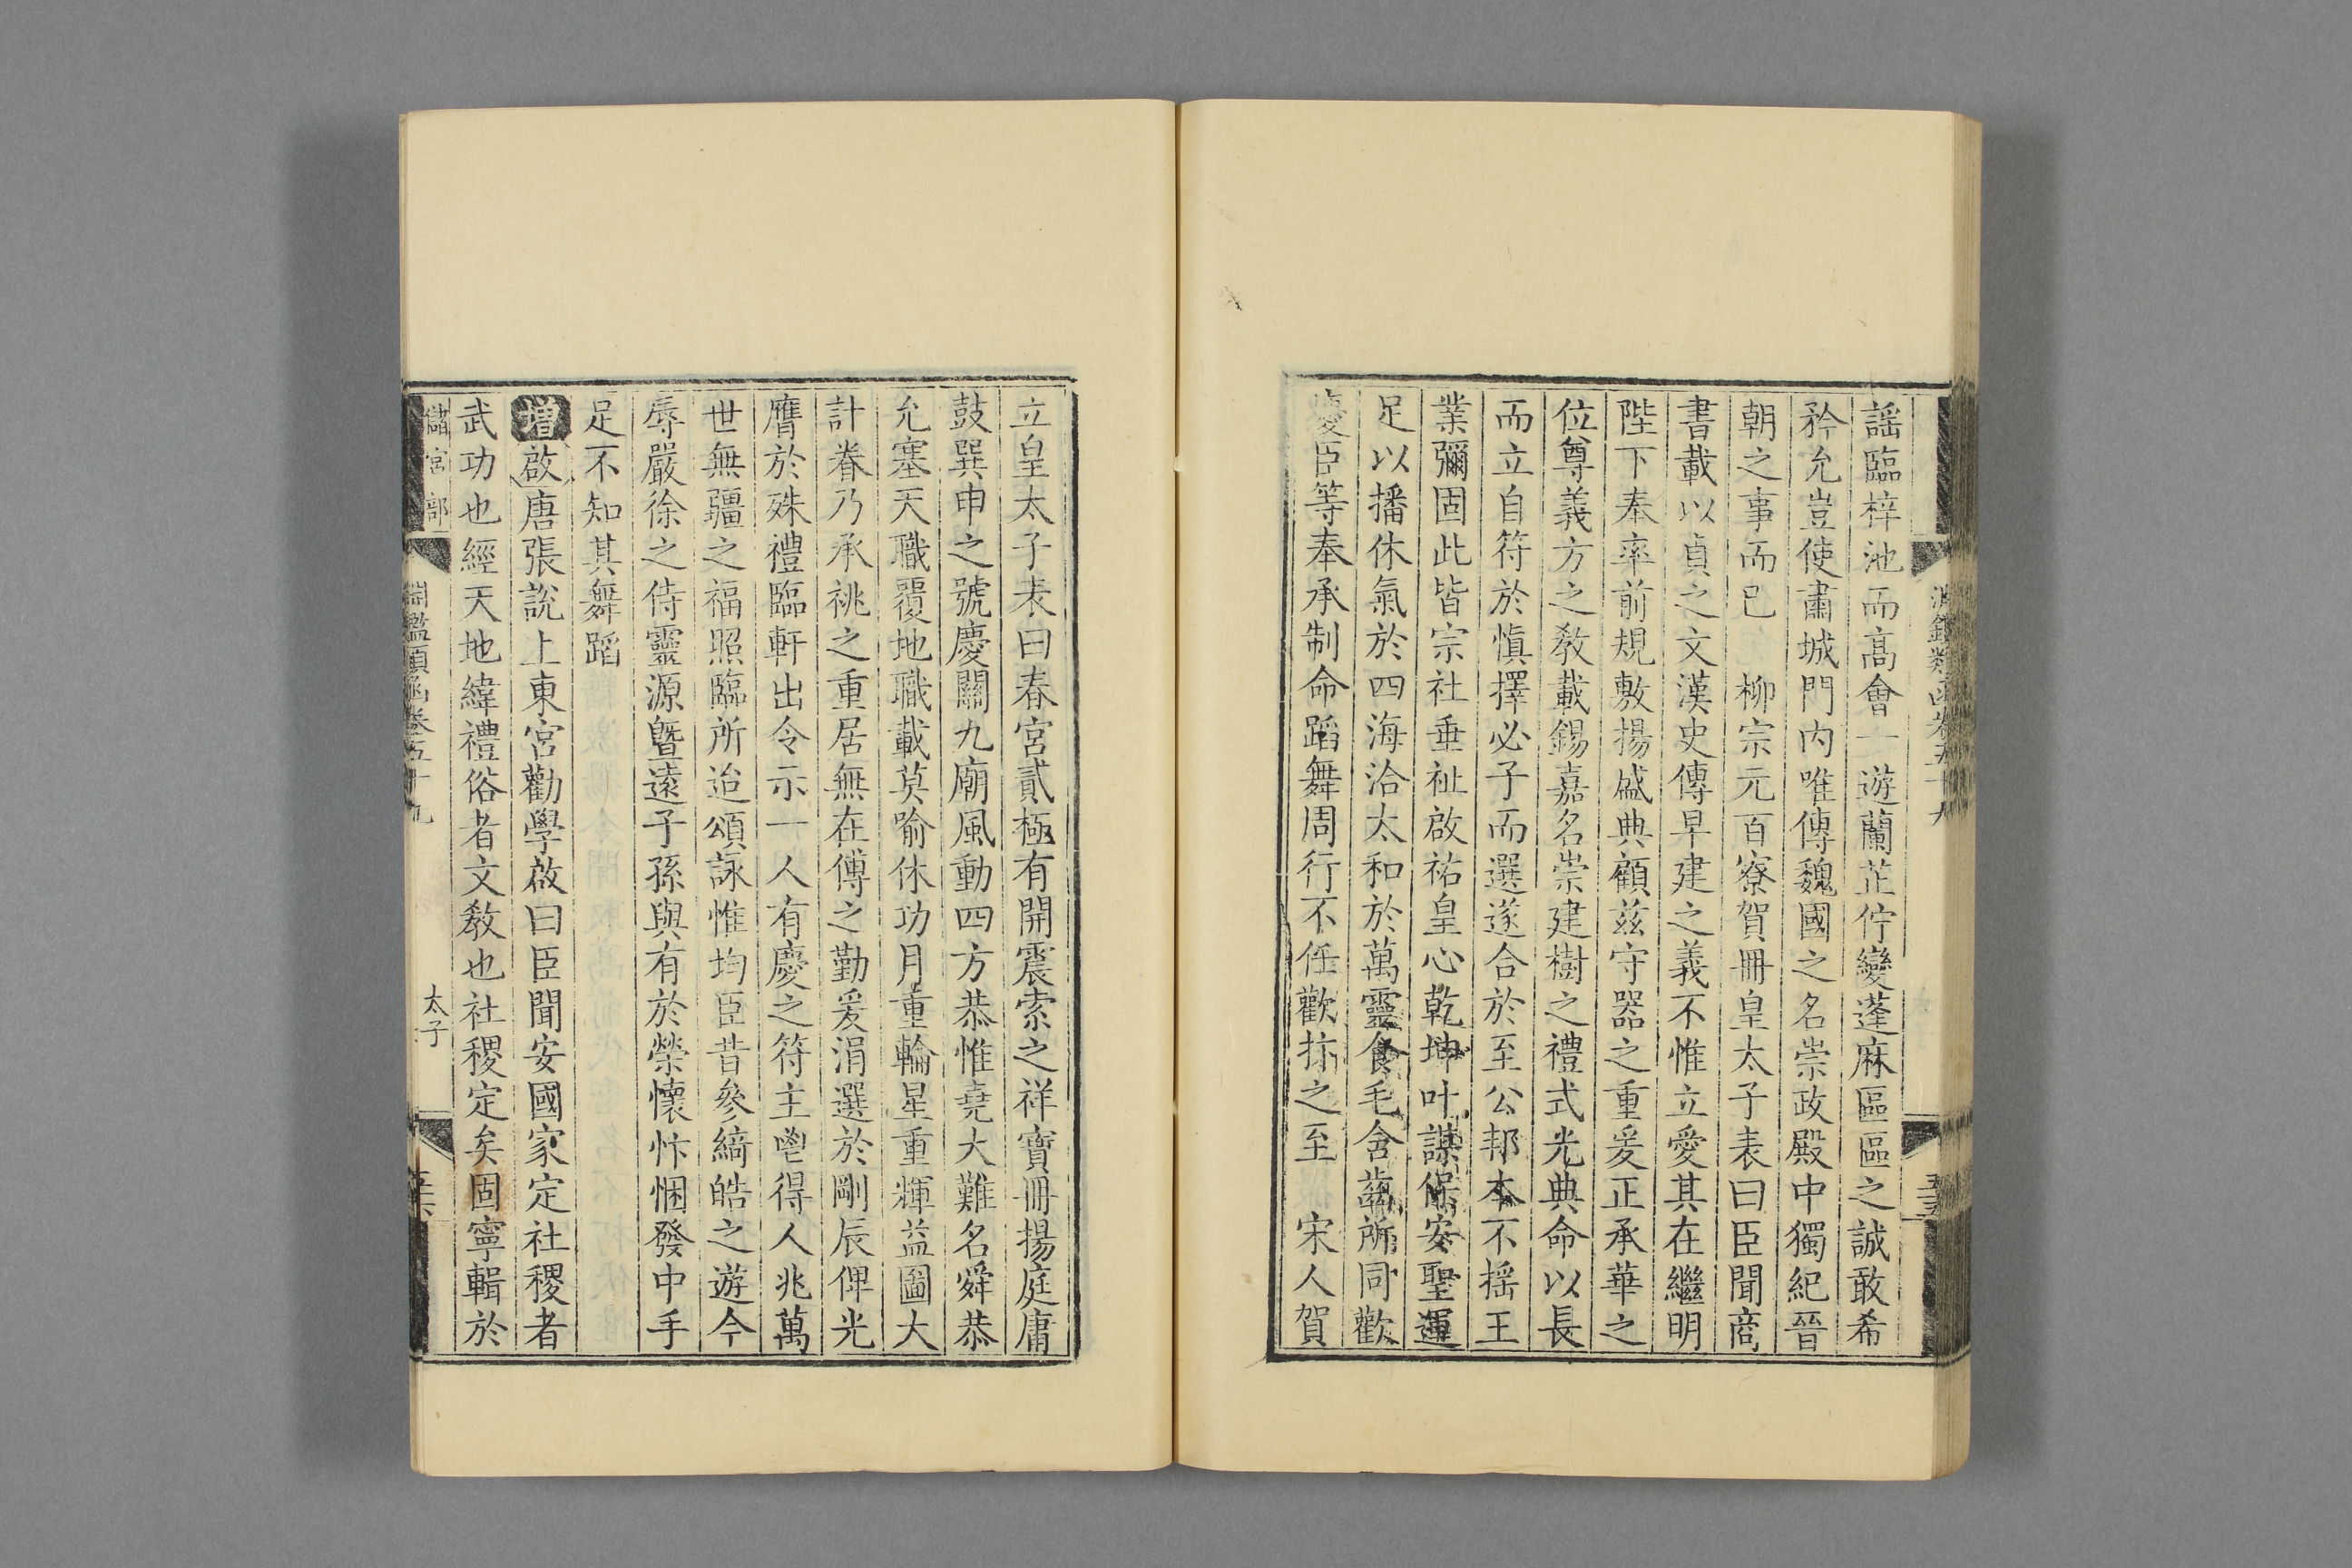 謡臨梓池而高會一遊蘭芷佇變蓬麻區區之誠敢希
矜允豈使肅城門内唯傳魏國之名崇政殿中獨紀晉
朝之事而已　柳宗元百寮賀冊皇太子表曰臣聞商
書載以貞之文漢史傳早建之義不惟立愛其在繼明
陛下奉率前規敷揚盛典顧茲守器之重爰正承華之
位尊義方之教載錫嘉名崇建樹之禮式光典命以長
而立自符於慎擇必子而選遂合於至公邦本不揺王
業彌固此皆宗社垂祉啟祐皇心乾坤叶謀保安聖運
足以播休氣於四海洽太和於萬靈食毛含齒所同歡
慶臣等奉承制命蹈舞周行不任歡抃之至　宋人賀
立皇太子表曰春宮貳極有開震索之祥寶冊揚庭庸
鼓巽申之號慶關九廟風動四方恭惟堯大難名舜恭
允塞天職覆地職載莫喻休功月重輪星重輝益圖大
計眷乃承祧之重居無在傅之勤爰涓選於剛辰俾光
膺於殊禮臨軒出令示一人有慶之符主鬯得人兆萬
世無疆之福照臨所迨頌詠惟均臣昔參綺皓之遊今
辱嚴徐之侍靈源曁遠子孫與有於榮懷忭悃發中手
足不知其舞蹈
增啟唐張說上東宮勸學啟曰臣聞安國家定社稷者
武功也經天地緯禮俗者文教也社稷定矣固寧輯於
儲宮部
淵鑑類函卷五十九
太子